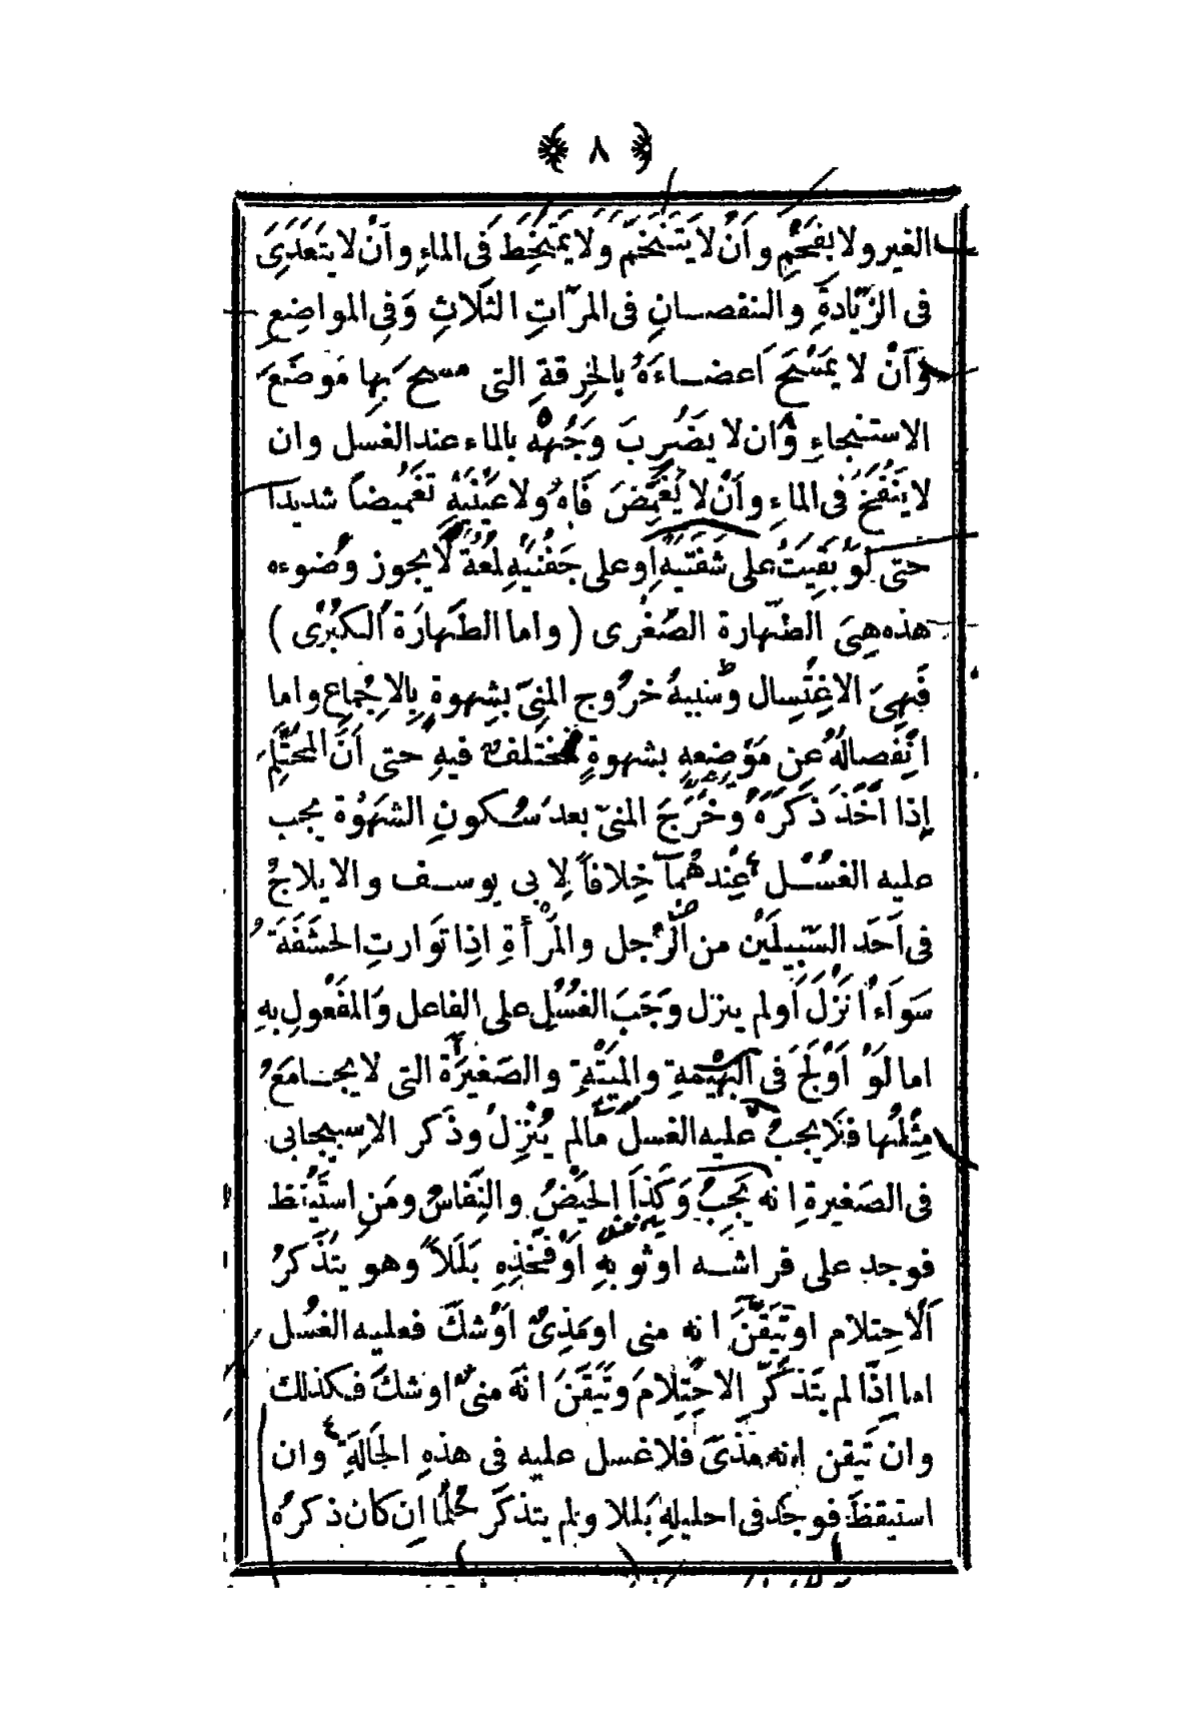 ﴿ ٨ ﴾
الغير ولا يفحم وأن لا يتنخم ولا يمتخط فى الماء وأن لا يتعدى
فى الزيادة والنقصان فى المرات الثلاث وفى المواضع
وأن لا يمسح اعضاءه بالخرقة التى مسح بها موضع
الاستنجاء وان لا يضرب وجهه بالماء عند الغسل وان
لا ينفخ فى الماء وأن لا يغمض فاه ولا عينيه تغميضا شديدا
حتى لو بقيت على شفتيه او على جفنيه لمعة لا يجوز وضوءه
هذه هى الطهارة الصغرى ( واما الطهارة الكبرى )
فهى الاغتسال وسببه خروج المنى بشهوة بالاجماع واما
انفصاله عن موضعه بشهوة فمختلف فيه حتى أن المحتلم
إذا أخذ ذكره وخرج المنى بعد سكون الشهوة يجب
عليه الغسل عندهما خلافا لابى يوسف والايلاج
فى احد السبيلين من الرجل والمرأة اذا توارت الحشفة
سواء انزل أولم ينزل وجب الغسل على الفاعل والمفعول به
اما لو أولج فى البهيمة والميتة والصغيرة التى لا يجامع
مثلها فلا يجب عليه الغسل مالم ينزل وذكر الاسبيجابى
فى الصغيرة انه يجب وكذا الحيض والنفاس ومن استيقظ
فوجد على فراشه او ثوبه أو فخذه بللا وهو يتذكر
الاحتلام او تيقن انه منى او مذى أوشك فعليه الغسل
اما إذا لم يتذكر الاحتلام وتيقن انه منى اوشك فكذلك
وان تيقن انه مذى فلا غسل عليه فى هذه الحالة وان
استيقظ فوجد فى احليله بللا ولم يتذكر حلما ان كان ذكره